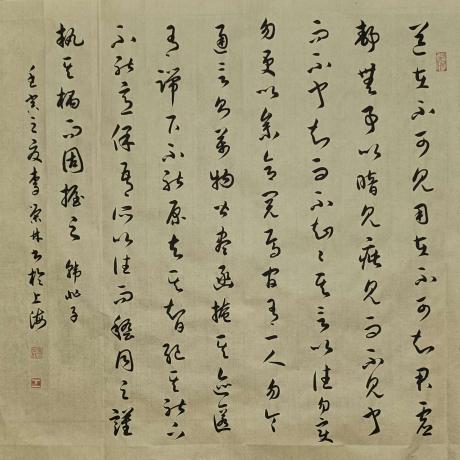 道在不可見用在不可知君虛
靜無事以暗見疵見而不見聞
而不聞知而不知知其言以往勿變
勿更以參合閱焉官有一人勿令
通言則萬物皆盡函掩其跡匿
有端下不能原去其智絕其能下
不能意保吾所以往而稽同之謹
執其柄而固握之 韓非子
壬寅之夏李林书於上海